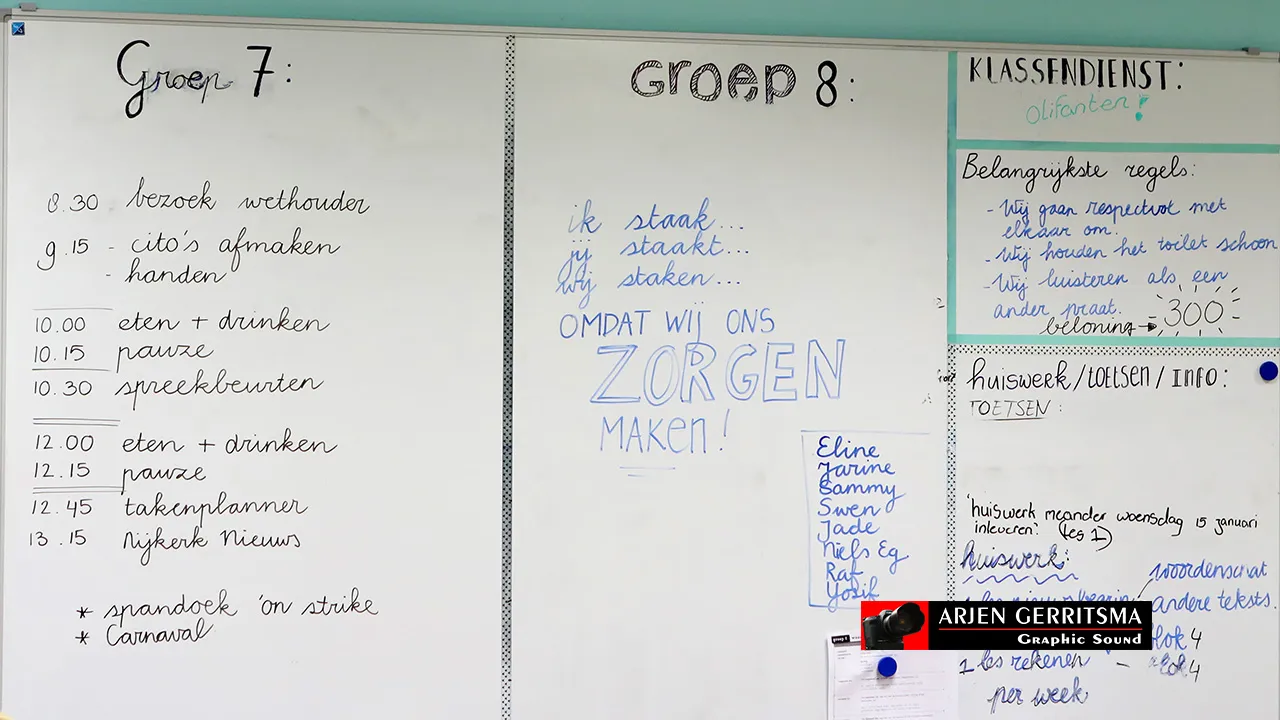 Groep 7:
8.30 bezoek wethouder
9.15 - cito's afmaken
- handen
10.00 eten + drinken
10.15 pauze
10.30 spreekbeurten
12.00 eten + drinken
12.15 pauze
12.45 takenplanner
13.15 Nijkerk Nieuws
* spandoek 'on strike
* Carnaval
GROEP 8:
ik staak...
jij staakt...
wij staken...
OMDAT WIJ ONS
ZORGEN
MAKEN!
Eline
Jarine
Sammy
Swen
Jade
Niels Eg
Raf
Yosif
KLASSENDIENST:
Olifanten!
Belangrijkste regels:
- Wij gaan respectvol met
elkaar om.
- Wij houden het toilet schoon
- Wij luisteren als een
ander praat.
beloning → 300
huiswerk/TOETSEN/INFO:
TOETSEN:
'huiswerk meander woensdag 15 januari
inleveren: (les 1)
huiswerk:
woordenschat
andere teksts.
blok 4
1 les rekenen - blok 4
per week
ARJEN GERRITSMA
Graphic Sound